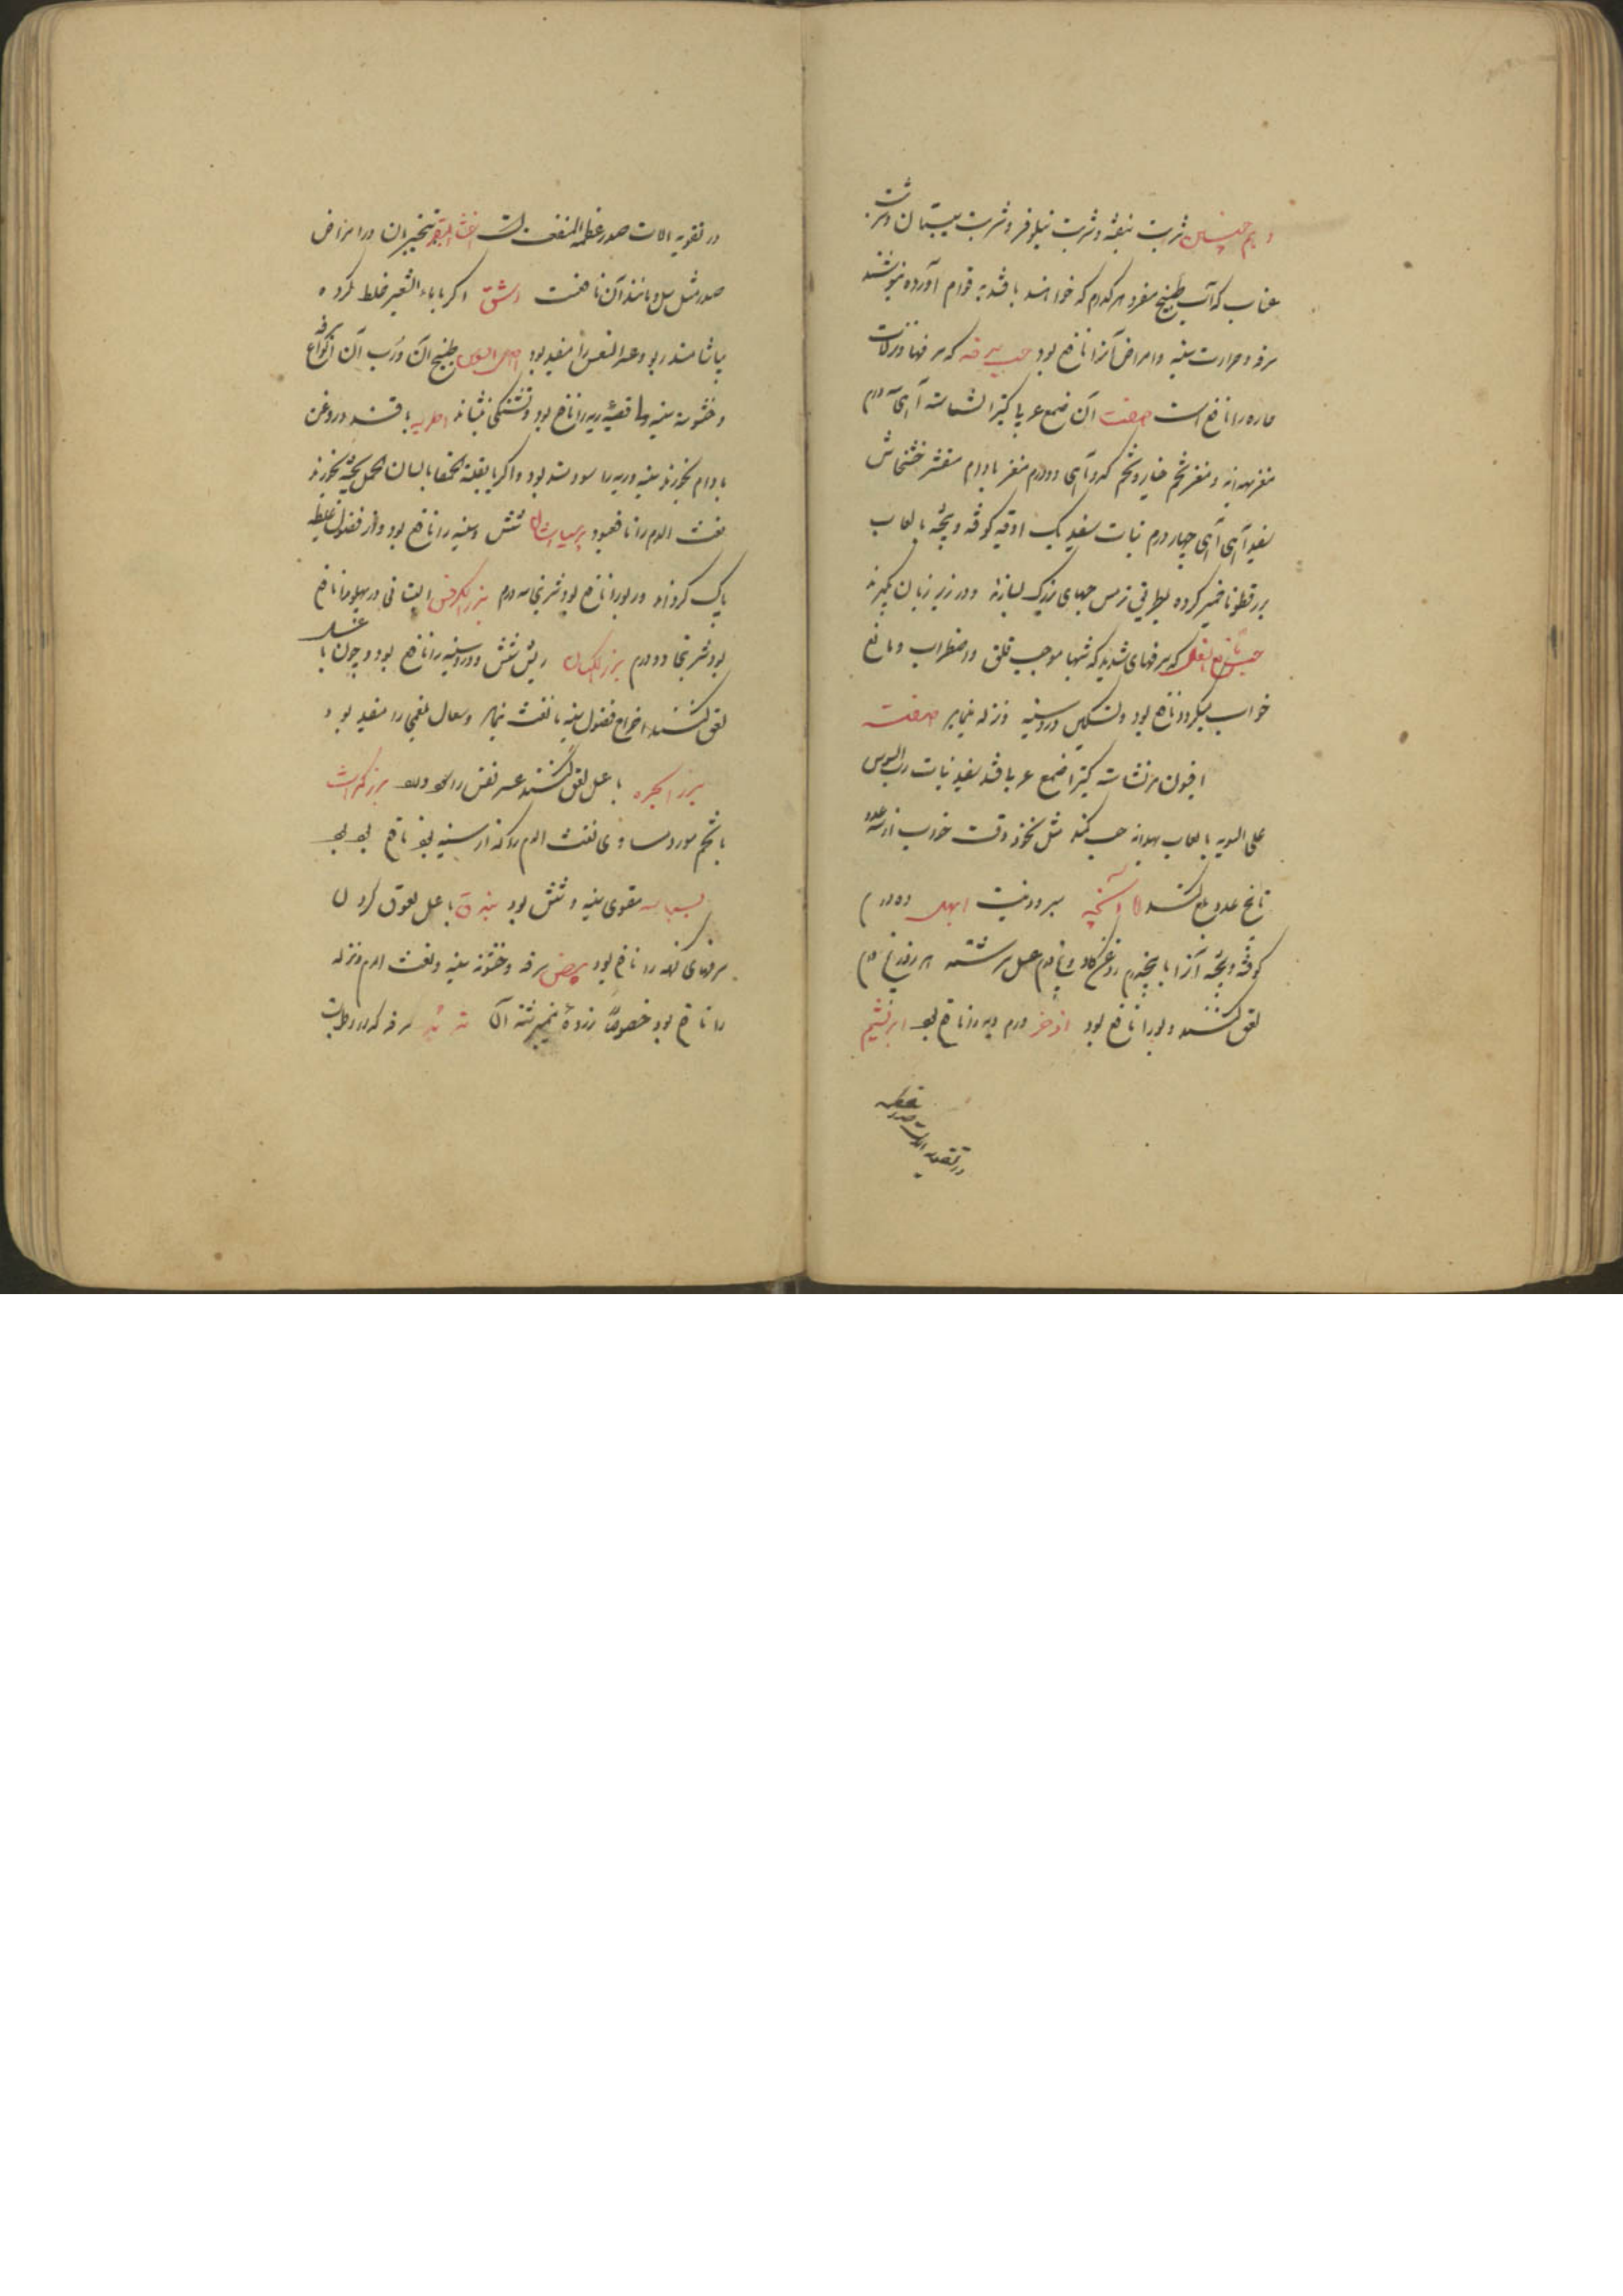 و هم چنین شربت بنفشه و شربت نیلوفر و شربت سپستان و شربت
عناب که آب طبیخ مفرد هر کدام که خواهند با قند به قوام آورده بنوشند
سرفه و حرارت سینه و امراض آنرا نافع بود حب سرفه که سرفها و نزلات
حاره را نافع است صفت آن صمغ عربی کتیرا نشاسته از هر یک درم
مغز بهدانه و مغز تخم خیار و تخم کدو از هر یک دو درم مغز بادام مقشر خشخاش
سفید از هر یک چهار درم نبات سفید یک اوقیه کوفته و بیخته با لعاب
بزرقطونا خمیر کرده بطریق ترمس حبهای بزرگ بسازند و در زیر زبان گیرند
حب که سرفهای شدید که شبها موجب قلق و اضطراب و مانع
خواب میگردد نافع بود و تسکین درد سینه و نزله بنماید صفت
افیون نشاسته کتیرا صمغ عربی قند سفید نبات رب السوس
علی السویه با لعاب بهدانه حب کنند مثل نخود وقت خواب از سه عدد
تا پنج عدد بلع کنند سرد و نیست ابهل ده درم
کوفته و بیخته آنرا با پنج درم روغن گاو و پنج درم عسل سرشته هر روز پنج درم
لعق کنند و ربو را نافع بود اذخر درم ریه را نافع بود ابریشم
در تقویه آلات صدر عظیم
در تقویه آلات صدر عظیم المنفعت است اخثاء البقر تبخیر آن در امراض
صدر مثل سل و مانند آن نافعست اشق اگر با ماء الشعیر خلط کرده
بیاشامند ربو و عسر النفس را مفید بود اصل السوس طبیخ آن و رب آن انواع سرفه
و خشونت سینه و قصبه ریه را نافع بود و تشنگی بنشاند اطریه با قند و روغن
بادام بخورند سینه و ریه را سودمند بود و اگر با بقلة الحمقا یا لسان الحمل پخته بخورند
نفث الدم را نافع بود پرسیاوشان شش و سینه را نافع بود و از فضول غلیظه
پاک گرداند و ربو را نافع بود شربتی سه درم بزر الکرفس در پهلو را نافع
بود شربتها دو درم بزر الکتان ریش شش و درد سینه را نافع بود و چون با عسل
لعق کنند اخراج فضول سینه با نفث نماید و سعال بلغمی را مفید بود
بزر انجره با عسل لعق کنند عسر نفس را بزر کراث
با تخم مورد مساوی نفث الدم را که از سینه بود نافع بود
بسباسه مقوی سینه و شش بود با عسل لعوق کردن
سرفهای کهنه را نافع بود بیض سرفه و خشونت سینه و نفث الدم و نزله
را نافع بود خصوصاً زرده نیمبرشته آن سرفه که از رطوبت